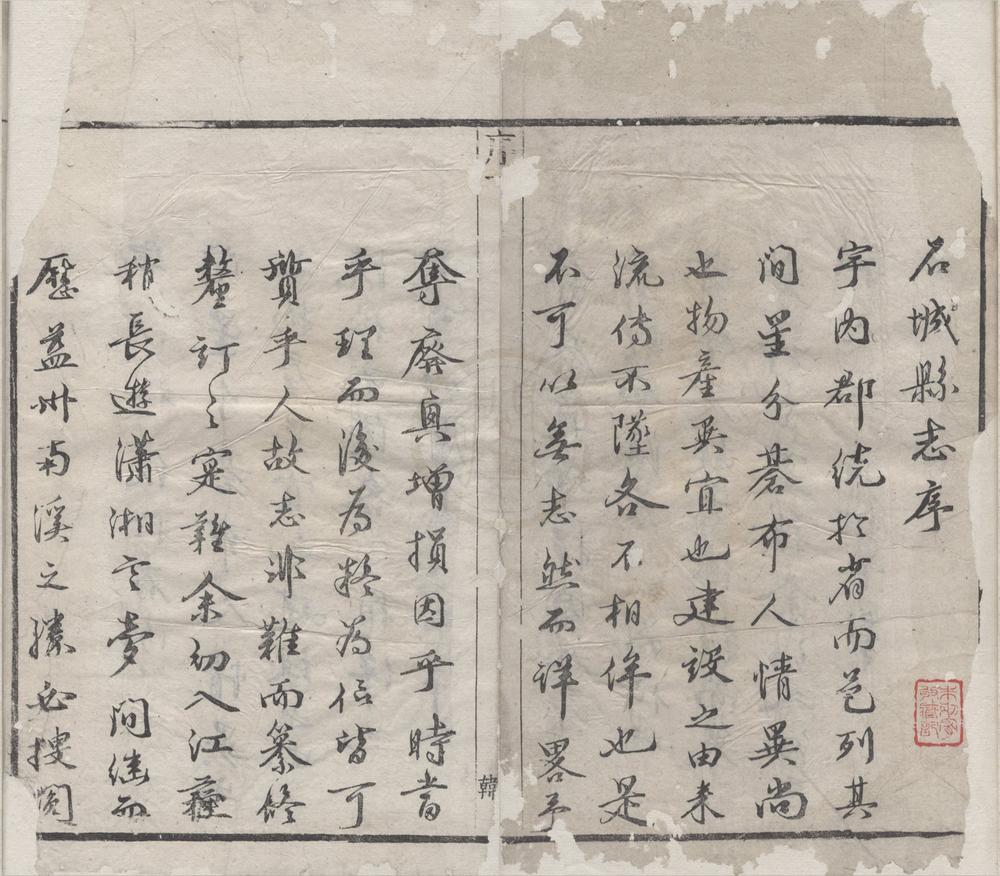 石城縣志序
宇內郡統於省而邑列其
間星分碁布人情異尚
也物產異宜也建設之由來
流傳不墜各不相侔也是
不可以無志然而詳畧予
奪廢興增損因乎時當
乎理而後為核為信皆可
質乎人故志非難而纂修
釐訂之寔難余幼入江
稍長遊瀟湘雲夢間繼而
歷益州南溪之勝必搜閱
序
韓